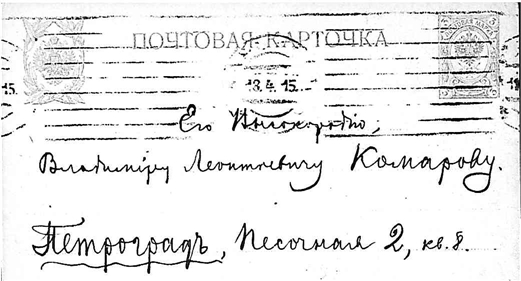 ПОЧТОВАЯ КАРТОЧКА
18.4.15
Его
Владиміру Леонтьевичу Комарову.
Петроградъ, Песочная 2, кв. 8.